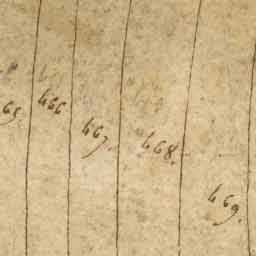 65
466
467.
468.
469.